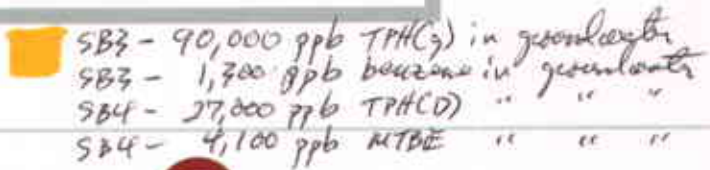 SB3 - 90,000 ppb TPH(g) in groundwater
SB3 - 1,300 ppb benzene in groundwater
SB4 - 27,000 ppb TPH(D) " " "
SB4 - 4,100 ppb MTBE " " "